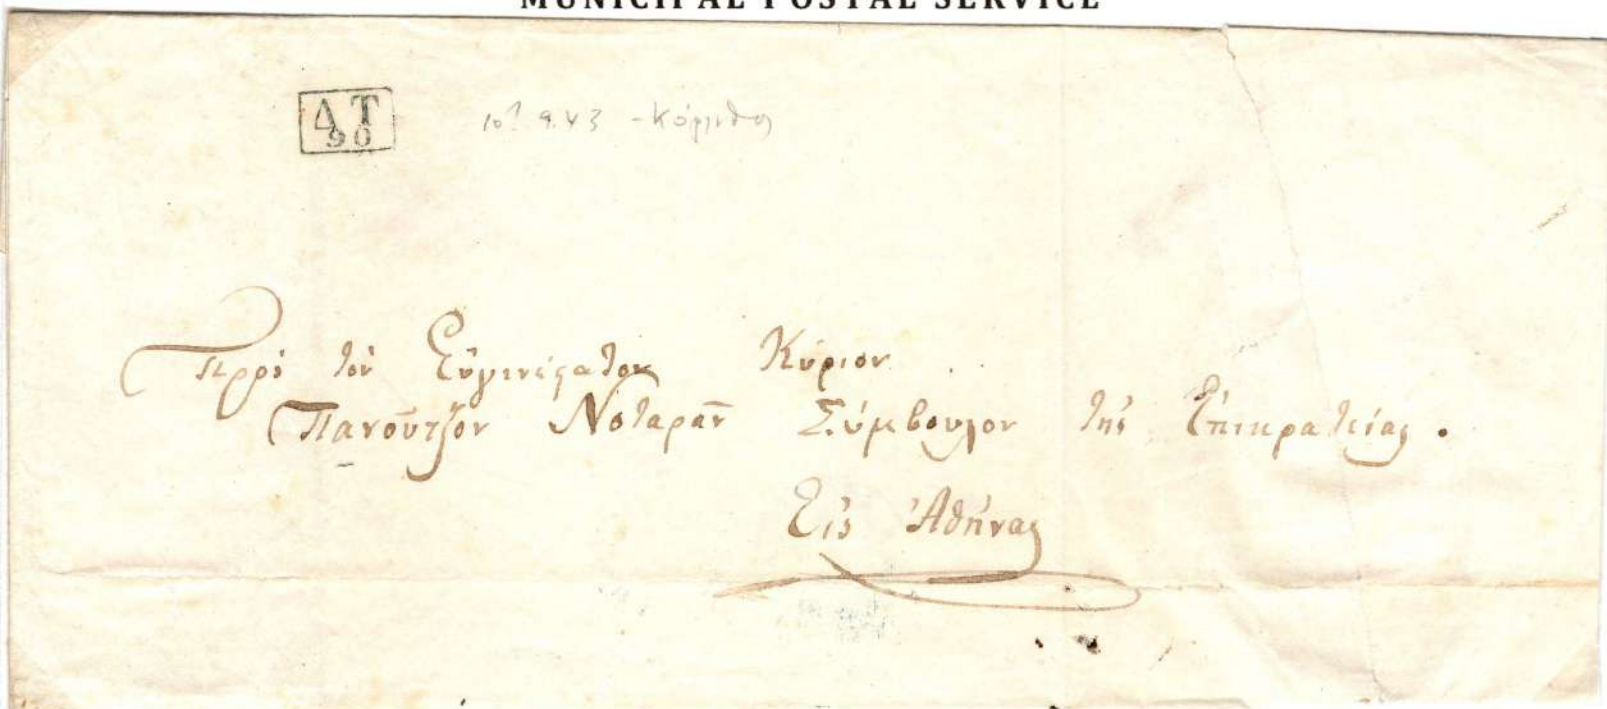 MUNICIPAL POSTAL SERVICE
ΔΤ
90
9.43 - Κόρινθος
Πρὸς τὸν Εὐγενέςατον Κύριον
Πανοῦτζον Νοταρᾶν Σύμβουλον τῆς Ἐπικρατείας.
Εἰς Ἀθήνας